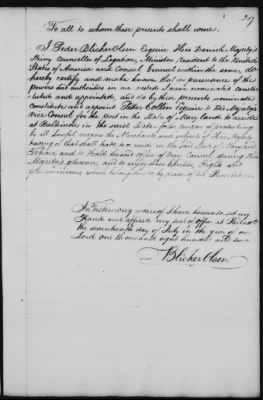 27
To all to whom these presents shall come.
I Peder Blicher Olsen Esquire His Danish Majesty's
Privy Counsellor of Legation, Minister resident to the United
States of America and Consul General within the same, do
hereby certify and make known that in pursuance of the
powers and authorities in me vested I have nominated consti-
tuted and appointed, and do by these presents nominate
constitute and appoint Peter Collin Esquire to be His Majesty's
Vice Consul for the port in the State of Maryland to reside
at Baltimore in the said State, for the purpose of protecting
by all lawful means the Merchants and subjects of His Majesty
trading or that shall have to trade in the said State of Maryland
To have and to hold the said office of Vice Consul during His
Majesty's pleasure, and to enjoy the liberties, rights and
pre-eminences which belong thereto by reason of his Functions
In Testimony whereof I have hereunto set my
Hand and affixed my seal of office at
the seventeenth day of July in the year of our
Lord one thousand eight hundred and
Blicher Olsen